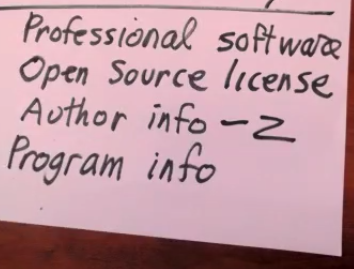 Professional software
Open Source license
Author info - Z
Program info